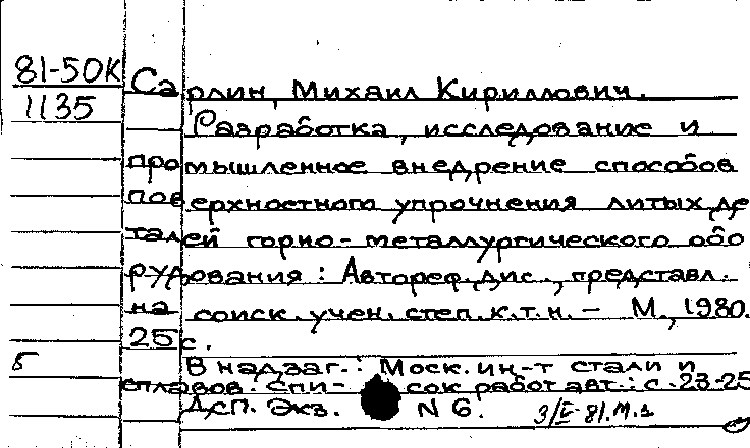 81-50К Сарлин, Михаил Кириллович.
1135 Разработка, исследование и
промышленное внедрение способов
поверхностного упрочнения литых де
талей горно-металлургического обо
рудования: Автореф. дис., представл.
на соиск. учен. степ. к.т.н. – М., 1980.
25 с.
Б В надзаг.: Моск. ин-т стали и
сплавов. Спи- сок работ авт.: с. 23-25
ДСП. Экз. N 6.